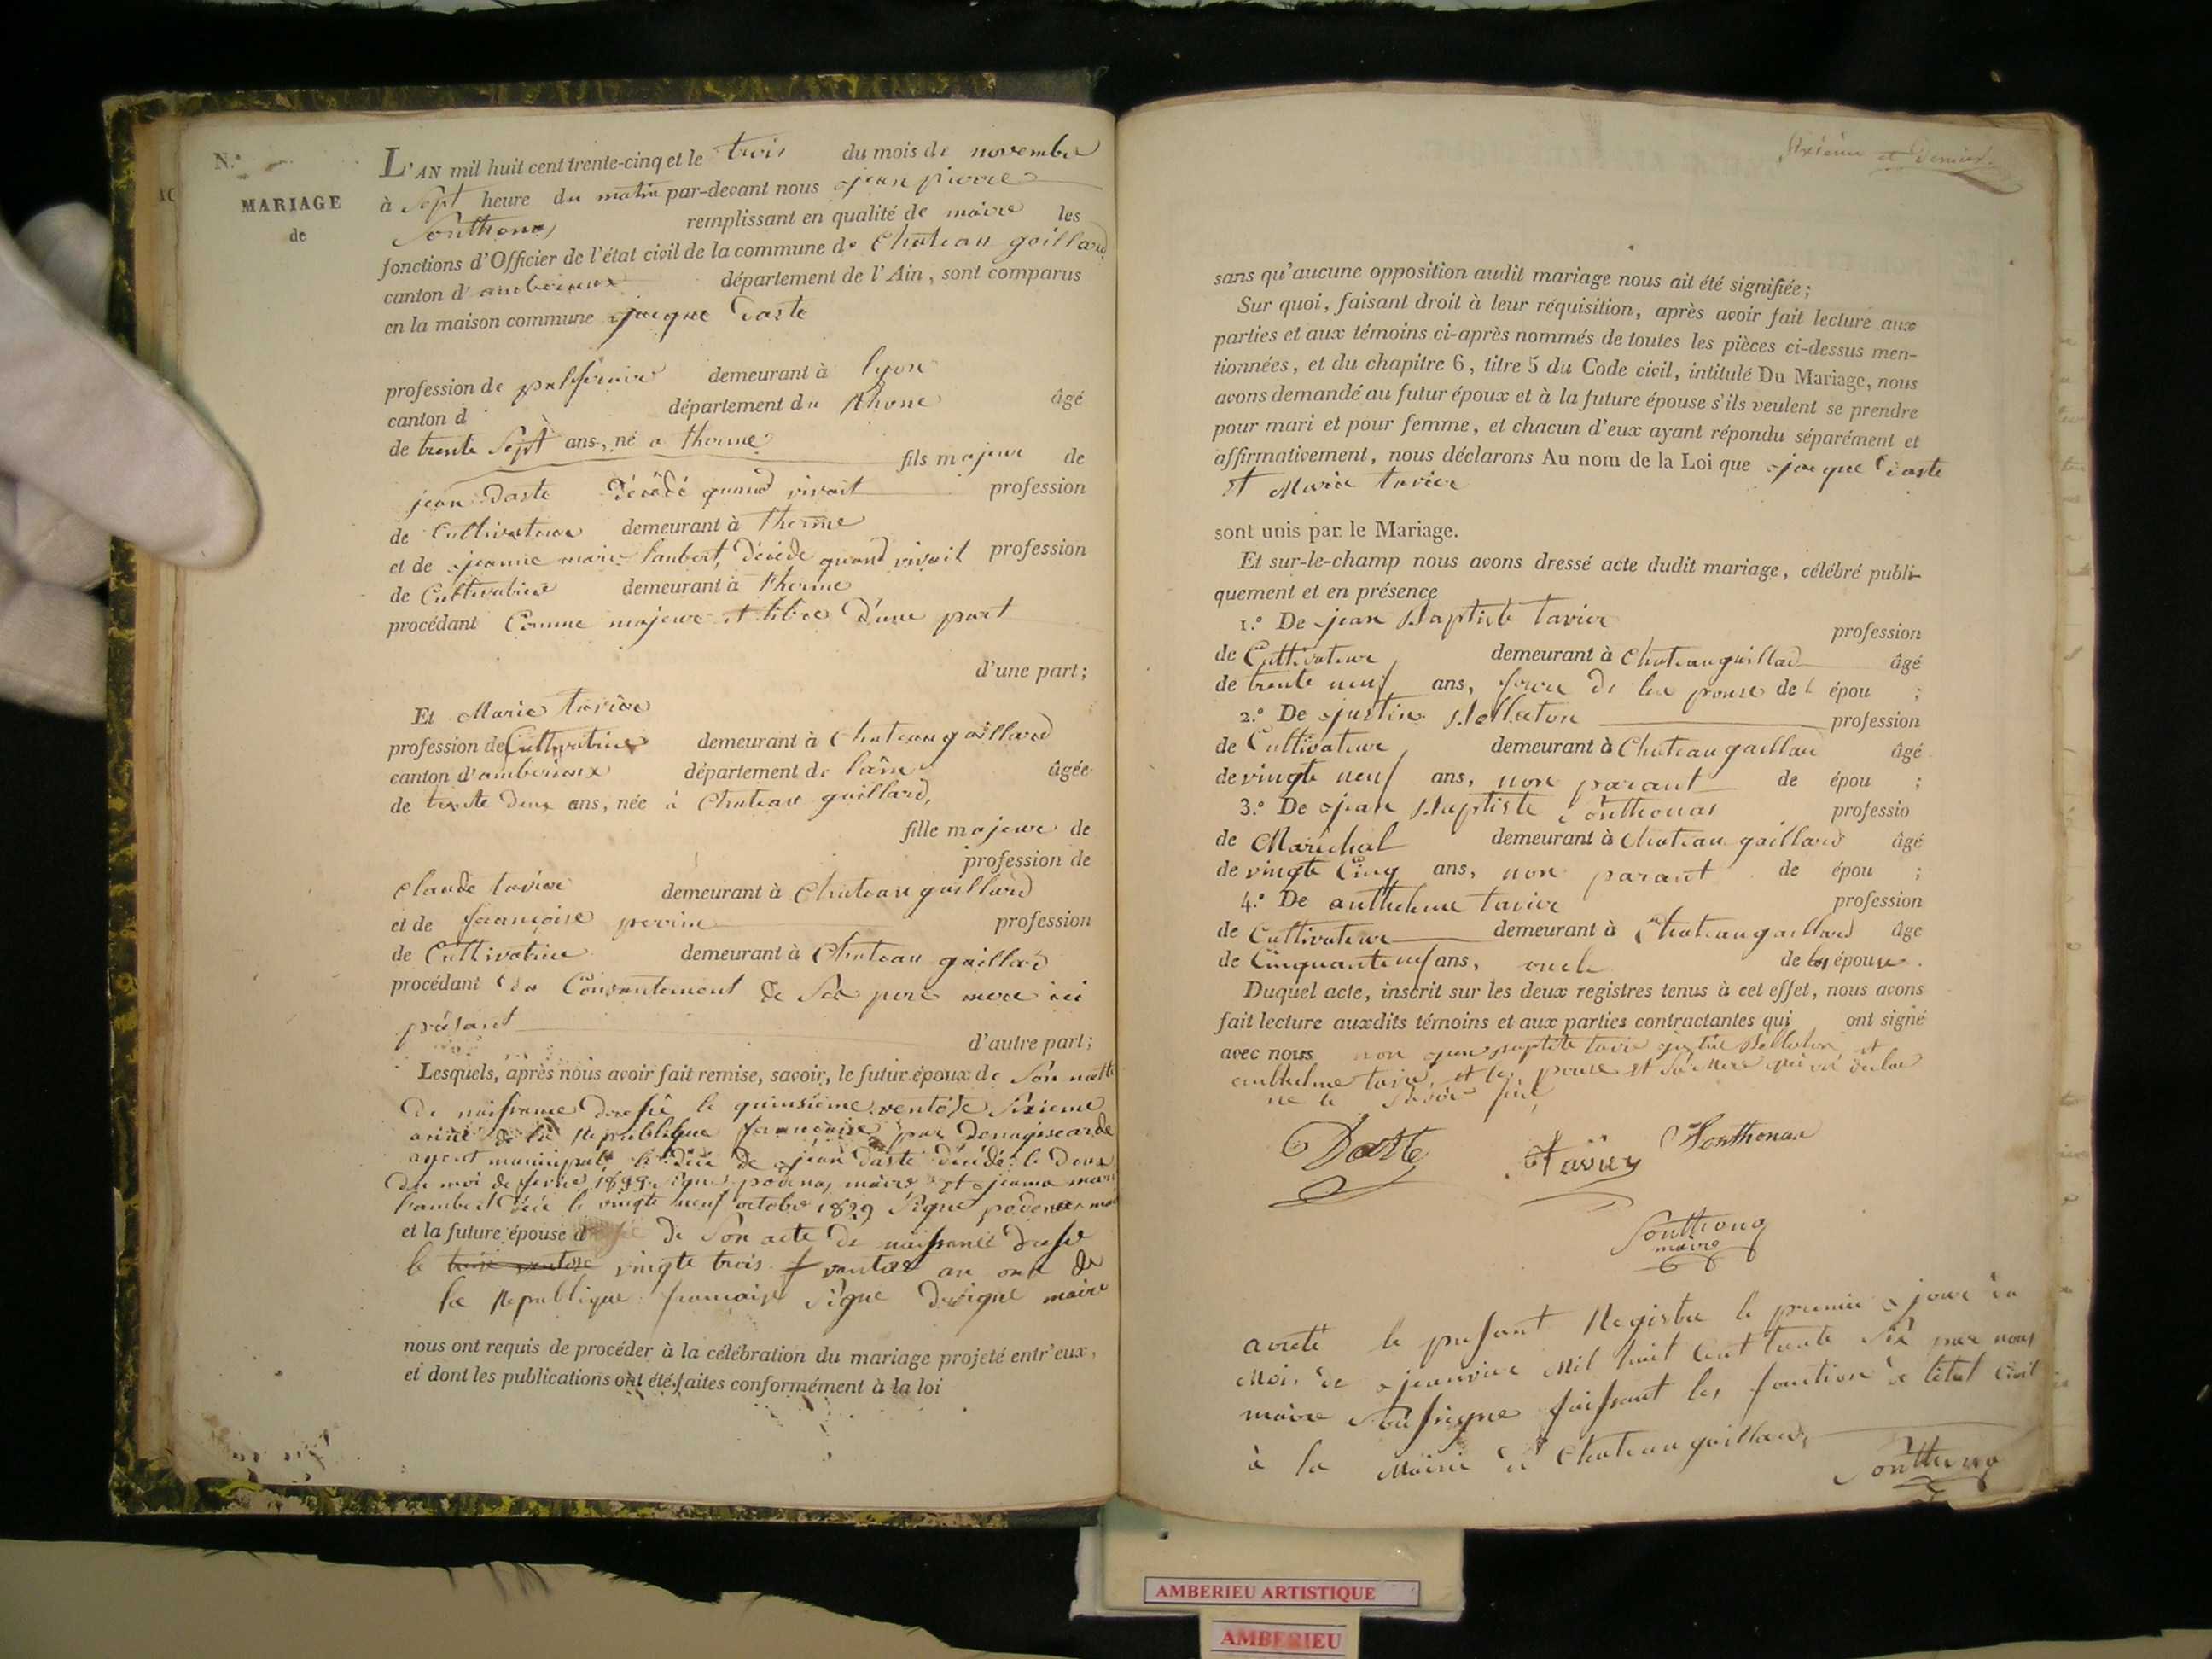 N.°
MARIAGE
de
L'AN mil huit cent trente-cinq et le trois du mois de novembre
à Sept heure du matin par-devant nous jean pierre
Sonthonas remplissant en qualité de maire les
fonctions d'Officier de l'état civil de la commune de Chateau gaillard
canton d'amberieux département de l'Ain, sont comparus
en la maison commune jacque Daste
profession de demeurant à lyon
canton d département du Rhone âgé
de trente Sept ans, né a therme
fils majeur de
jean Daste décédé quand vivait profession
de Cultivateur demeurant à therme
et de jeanne marie lambert, décédé quand vivait profession
de Cultivatrice demeurant à therme
procédant Comme majeure et libre d'une part
d'une part;
Et Marie tavier
profession de Cultivatrice demeurant à Chateau gaillard
canton d'amberieux département de lain âgée
de trente deux ans, née à Chateau gaillard,
fille majeure de
profession de
claude tavier demeurant à Chateau gaillard
et de francoise perrine profession
de Cultivatrice demeurant à Chateau gaillard
procédant du Consentement de Sea pere mere ici
présant
d'autre part;
Lesquels, après nous avoir fait remise, savoir, le futur époux de Son
de naissance dressé le quinsieme ventose Sixieme
année de la Republique francaise par
agent municipal le déce de jean daste décédé le deux
du moi de maire et jeanne marie
lambert décé le vingte neuf octobre 1829 Signe
et la future épouse d de Son acte de naissance dressé
le treise ventose vingte trois ventose an onze de
la Republique francaise Signe maire
nous ont requis de procéder à la célébration du mariage projeté entr'eux,
et dont les publications ont été faites conformément à la loi
Sixieme et Dernier
sans qu'aucune opposition audit mariage nous ait été signifiée;
Sur quoi, faisant droit à leur réquisition, après avoir fait lecture aux
parties et aux témoins ci-après nommés de toutes les pièces ci-dessus men-
tionnées, et du chapitre 6, titre 5 du Code civil, intitulé Du Mariage, nous
avons demandé au futur époux et à la future épouse s'ils veulent se prendre
pour mari et pour femme, et chacun d'eux ayant répondu séparément et
affirmativement, nous déclarons Au nom de la Loi que jacque Daste
et Marie tavier
sont unis par le Mariage.
Et sur-le-champ nous avons dressé acte dudit mariage, célébré publi-
quement et en présence
1.° De jean Baptiste tavier profession
de Cultivateur demeurant à Chateau gaillad âgé
de trente neuf ans, frere de lea pouse de l épou ;
2.° De justin Belleton profession
de Cultivateur demeurant à Chateau gaillard âgé
de vingte neuf ans, non parant de épou ;
3.° De jean Baptiste Sonthonas professio
de Maréchal demeurant à Chateau gaillard âgé
de vingte Cinq ans, non parant de épou ;
4.° De anthelme tavier profession
de Cultivateur demeurant à Chateau gaillard âge
de Cinquante neuf ans, oncle de les épouse.
Duquel acte, inscrit sur les deux registres tenus à cet effet, nous avons
fait lecture auxdits témoins et aux parties contractantes qui ont signé
avec nous non jean baptite tavie justin Belleton et
anthelme tavie, et le pouse et Sa Mere qui on declare
ne le Savoir fait
Daste Tavier Sonthonax
Sonthonas
maire
arreté le presant Registre le premier jour du
Mois de jeanvier Mil huit Cent trente Six par nous
maire Sousigne faissant les fonction de létat Civil
à la Mairie de Chateau gaillard,
Sonthonas
AMBERIEU ARTISTIQUE
AMBERIEU